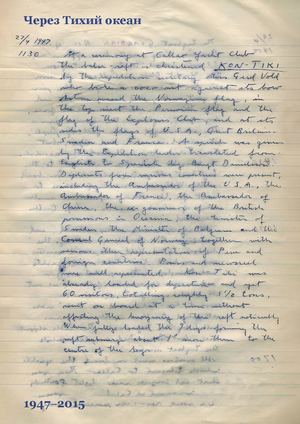 Через Тихий океан
27/4 1947
1130 At a ceremony at Callao Yacht Club
the balsa raft is christened KON-TIKI
by the expedition secretary Miss Gerd Vold
who broke a coco-nut against its bow
the Norwegian flag, in
the top mast the Peruvian flag and the
flag of the Explorers Club, and at its
sides the flags of U.S.A., Great Britain
Sweden and France. A speech was given
by the Expedition leader translated from
English to Spanish by Bengt Danielsson
Diplomats from various countries were present,
including the Ambassador of the U.S.A., the
Ambassador of France, the Ambassador of
China, the ex-governor of the British
possessions in Oceania, the Minister of
Sweden, the Minister of Belgium and the
Consul General of Norway together with
numerous other representatives of Peru and
foreign countries. Press and newsreel
were well represented. Kon-Tiki was
already loaded for expedition and yet
60 visitors, totalling roughly 4½ tons,
went on board at a time without
affecting the buoyancy of the raft noticeably
When fully loaded the
raft submerge about 1" more than to the
centre of the logs
1947–2015